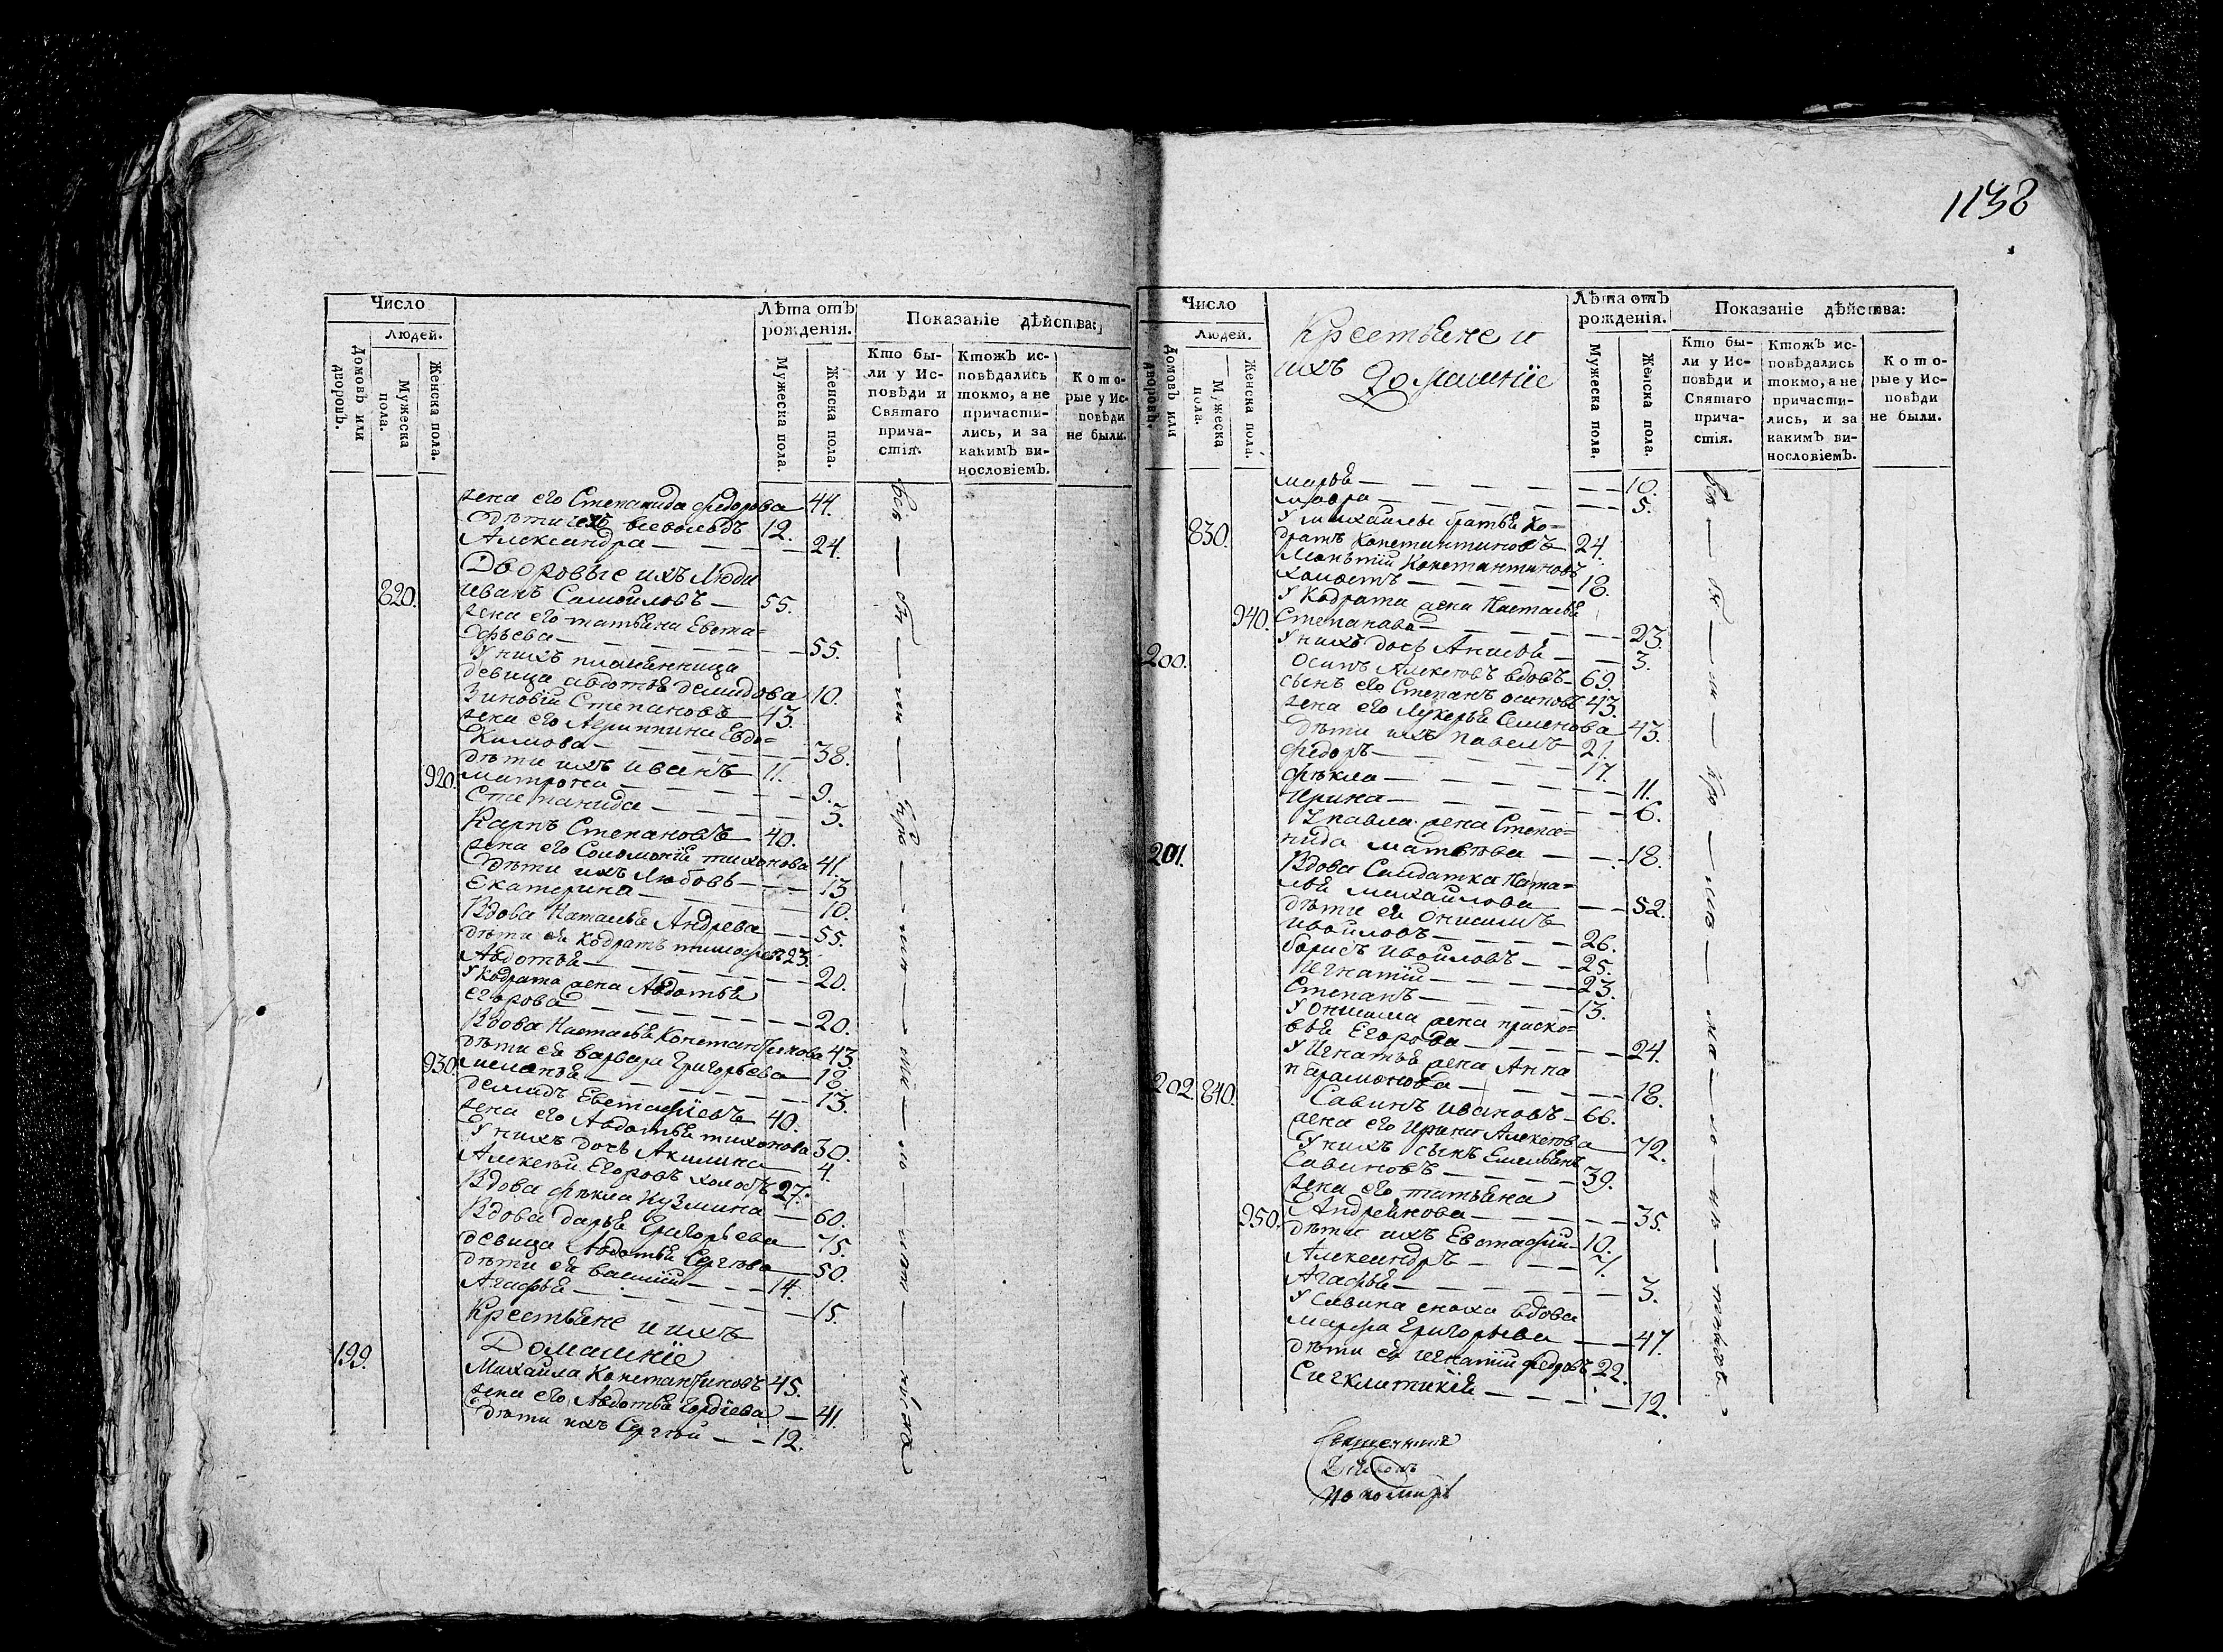 1138
Число
Людей.
Домовъ или дворовъ.
Мужеска пола.
Женска пола.
Лѣта отъ рожденія.
Мужеска пола.
Женска пола.
Показаніе дѣйства:
Кто были у Исповѣди и Святаго причастія.
Ктожъ исповѣдались токмо, а не причастились, и за какимъ винословіемъ.
Которые у Исповѣди не были.
жена его Степанида федорова 44.
дѣти ихъ всеволодъ 12.
Александра 24.
Дворовые ихъ Люди
820. иванъ Самойловъ 55.
жена его татьяна Евста=
фьева 55.
У нихъ племянница
девица авдотья демидова 10.
Зиновій Степановъ 43.
жена его Агрипина Евдо=
кимова 38.
дѣти ихъ иванъ 11.
920. матрона 9.
Степанида 3.
Карпъ Степановъ 40.
жена его Соломонія тихонова 41.
дѣти ихъ Любовь 13
Екатерина 10.
Вдова Наталья Андрева 55.
дѣти ея Кодратъ тимофеевъ 23.
Авдотья 20.
У Кодрата жена Авдотья
егорова 20.
Вдова Настасья Константинова 43.
дѣти ея варвара Григорьева 18.
930. 13.
демидъ Евстафіевъ 40.
жена его Авдотья тихонова 30.
У нихъ дочь Акилина 4.
Алексѣй Егоровъ холостъ 27.
Вдова фекла Кузмина 60.
Вдова дарья Григорьева 75.
девица Авдотья Сергѣева 50.
дѣти ея василій 14.
Агафья 15.
Крестьяне и ихъ
Домашніе
199. Михайла Константиновъ 45.
жена его Авдотья Гордѣева 41.
дѣти ихъ Сергѣй 12.
всѣ
Число
Людей.
Домовъ или дворовъ.
Мужеска пола.
Женска пола.
Крестьяне и
ихъ Домашніе
Лѣта отъ рожденія.
Мужеска пола.
Женска пола.
Показаніе дѣйства:
Кто были у Исповѣди и Святаго причастія.
Ктожъ исповѣдались токмо, а не причастились, и за какимъ винословіемъ.
Которые у Исповѣди не были.
марья 10.
мавра 5.
У михайлы братья Ко=
830. дратъ Константиновъ 24.
Константиновъ
холостъ 18.
У Кодрата жена Настасья
940. Степанава 23.
У нихъ дочь Анисья 3.
200. Осипъ Алексѣевъ вдовъ 69.
сынъ его Степанъ осиповъ 43.
жена его Лукерья Семенова 43.
дѣти ихъ павелъ 21.
федоръ 17.
фекла 11.
Ирина 6.
У павла жена Степа=
нида матвѣева 18.
201. Вдова Салдатка Ната=
лья михайлова 52.
дѣти ея Онисимъ
ивойловъ 26.
борисъ ивойловъ 25.
Игнатій 23.
Степанъ 13.
У Онисима жена праско=
вья Егорова 24.
У Игнатья жена Анна
парамонова 18.
202. 840. Савинъ ивановъ 66.
жена его Ирина Алексѣева 72.
У нихъ сынъ Емельянъ
Савиновъ 39.
жена его татьяна
950. Андреянова 35.
дѣти ихъ Евстафий 10.
Александръ 7.
Агафья 3.
У Савина сноха вдова
марфа Григорьева 47.
дѣти ея Игнатій федоровъ 22.
Сигклитикія 12.
всѣ
Священникъ